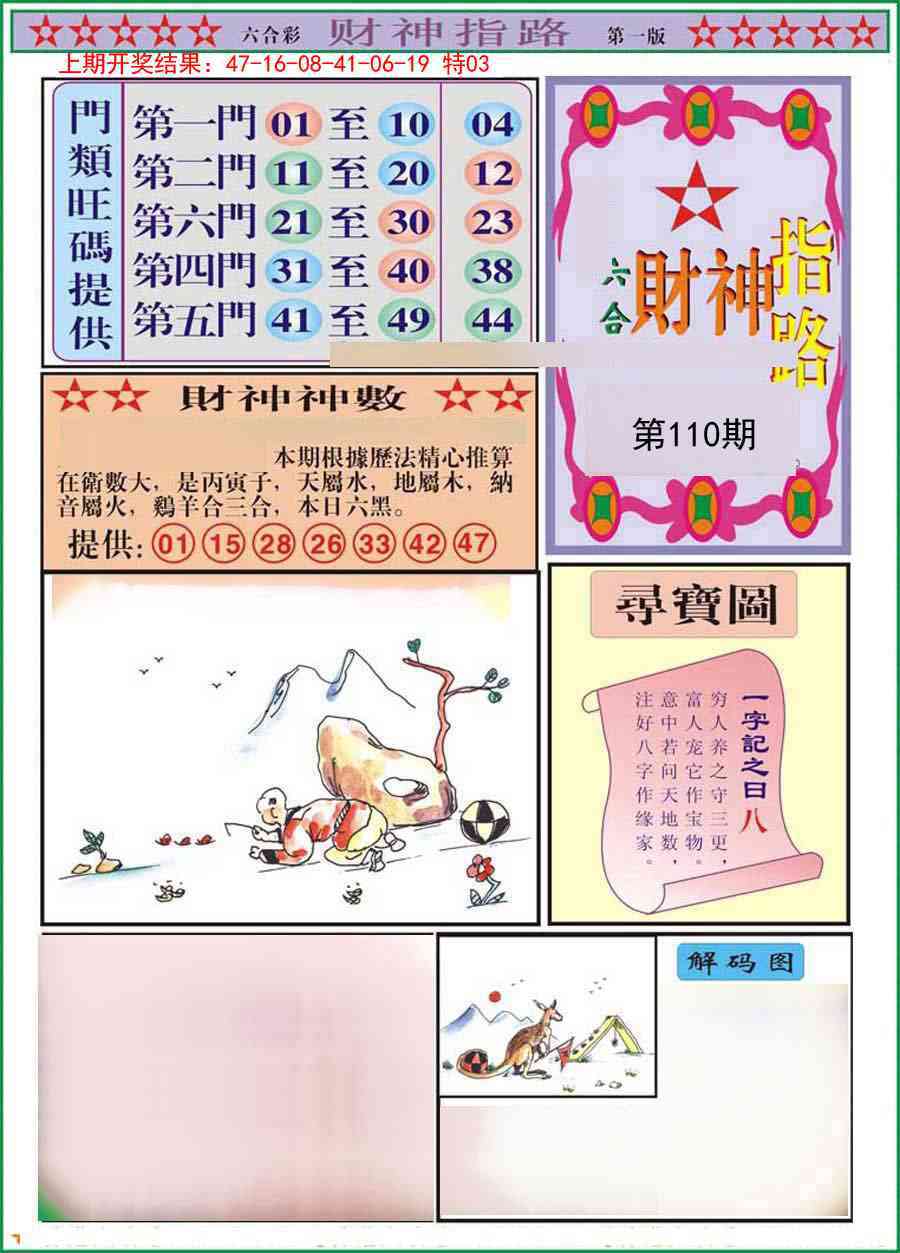 六合彩 财神指路 第一版
上期开奖结果：47-16-08-41-06-19 特03
門類旺碼提供
第一門 01 至 10 04
第二門 11 至 20 12
第六門 21 至 30 23
第四門 31 至 40 38
第五門 41 至 49 44
六合 財神指路
第110期
財神神數
本期根據歷法精心推算
在衛數大，是丙寅子，天屬水，地屬木，納
音屬火，鷄羊合三合，本日六黑。
提供: 01 15 28 26 33 42 47
尋寶圖
一字記之曰 八
穷人养之守三更，
富人宠它作宝物。
意中若问天地数，
注好八字作缘家。
解码图